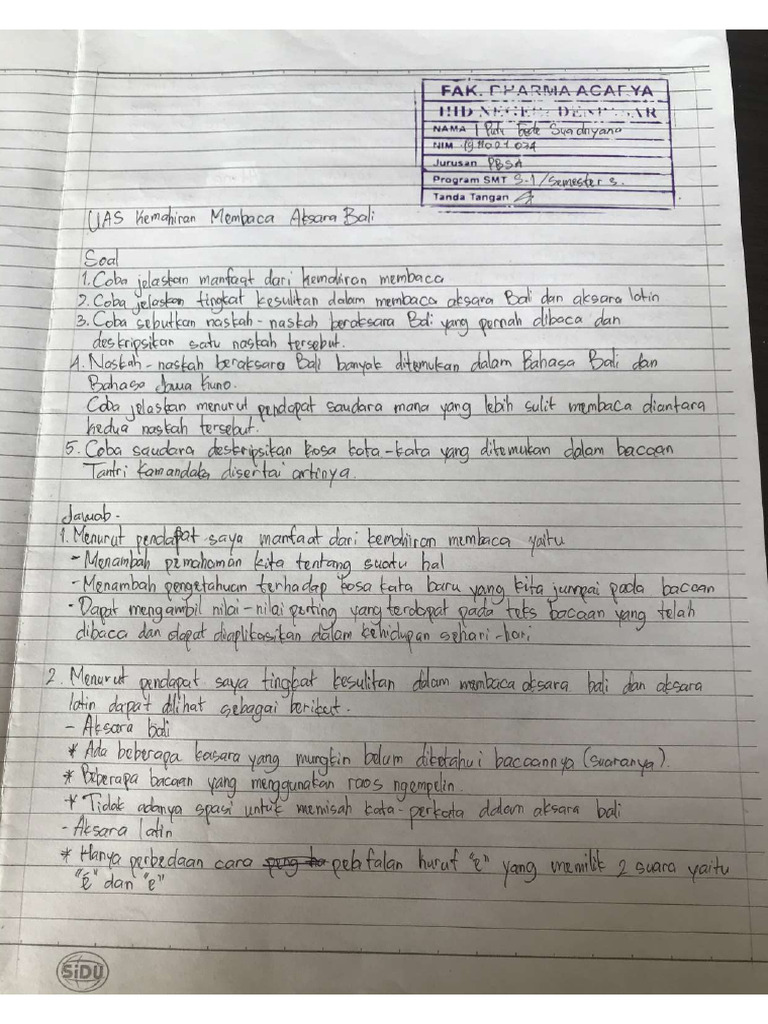 FAK. DHARMA ACARYA
IHD NEGERI DENPASAR
NAMA I Putu Gede
NIM
Jurusan PBSA
Program SMT S-1/Semester 3.
Tanda Tangan
UAS Kemahiran Membaca Aksara Bali
Soal
1. Coba jelaskan manfaat dari kemahiran membaca
2. Coba jelaskan tingkat kesulitan dalam membaca aksara Bali dan aksara latin
3. Coba sebutkan naskah-naskah beraksara Bali yang pernah dibaca dan
deskripsikan satu naskah tersebut.
4. Naskah-naskah beraksara Bali banyak ditemukan dalam Bahasa Bali dan
Bahasa Jawa Kuno.
Coba jelaskan menurut pendapat saudara mana yang lebih sulit membaca diantara
kedua naskah tersebut.
5. Coba saudara deskripsikan kosa kata-kata yang ditemukan dalam bacaan
Tantri Kamandaka disertai artinya.
Jawab.
1. Menurut pendapat saya manfaat dari kemahiran membaca yaitu
- Menambah pemahaman kita tentang suatu hal
- Menambah pengetahuan terhadap kosa kata baru yang kita jumpai pada bacaan
- Dapat mengambil nilai-nilai penting yang terdapat pada teks bacaan yang telah
dibaca dan dapat diaplikasikan dalam kehidupan sehari-hari
2. Menurut pendapat saya tingkat kesulitan dalam membaca aksara bali dan aksara
latin dapat dilihat sebagai berikut.
- Aksara bali
* Ada beberapa kasara yang mungkin belum diketahui bacaannya (suaranya).
* Beberapa bacaan yang menggunakan raos ngempelin.
* Tidak adanya spasi untuk memisah kata-perkata dalam aksara bali
- Aksara latin
* Hanya perbedaan cara pelafalan huruf "e" yang memilik 2 suara yaitu
"é" dan "e"
SiDU